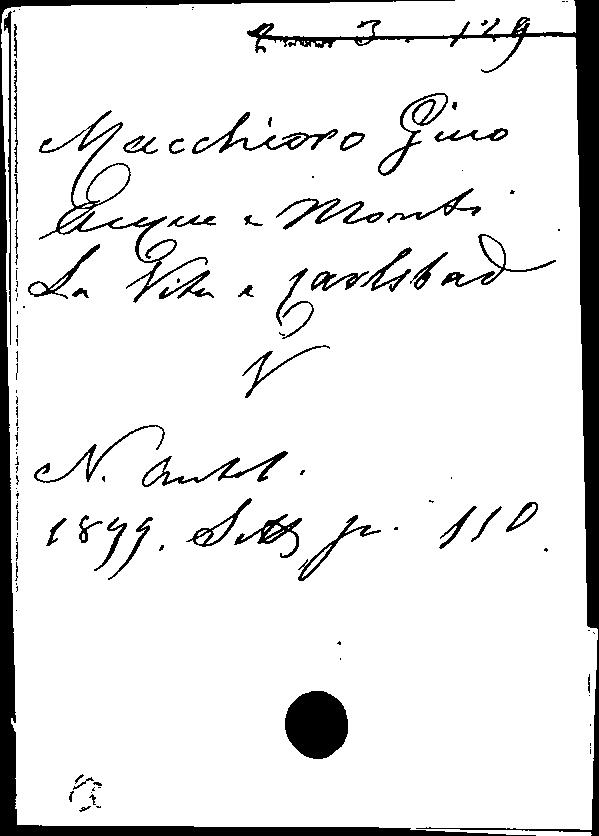 3. 129
Macchioro Gino
Acque e Monti
La Vita a Carlsbad
V
N. Antol.
1899. Sett. p. 110.